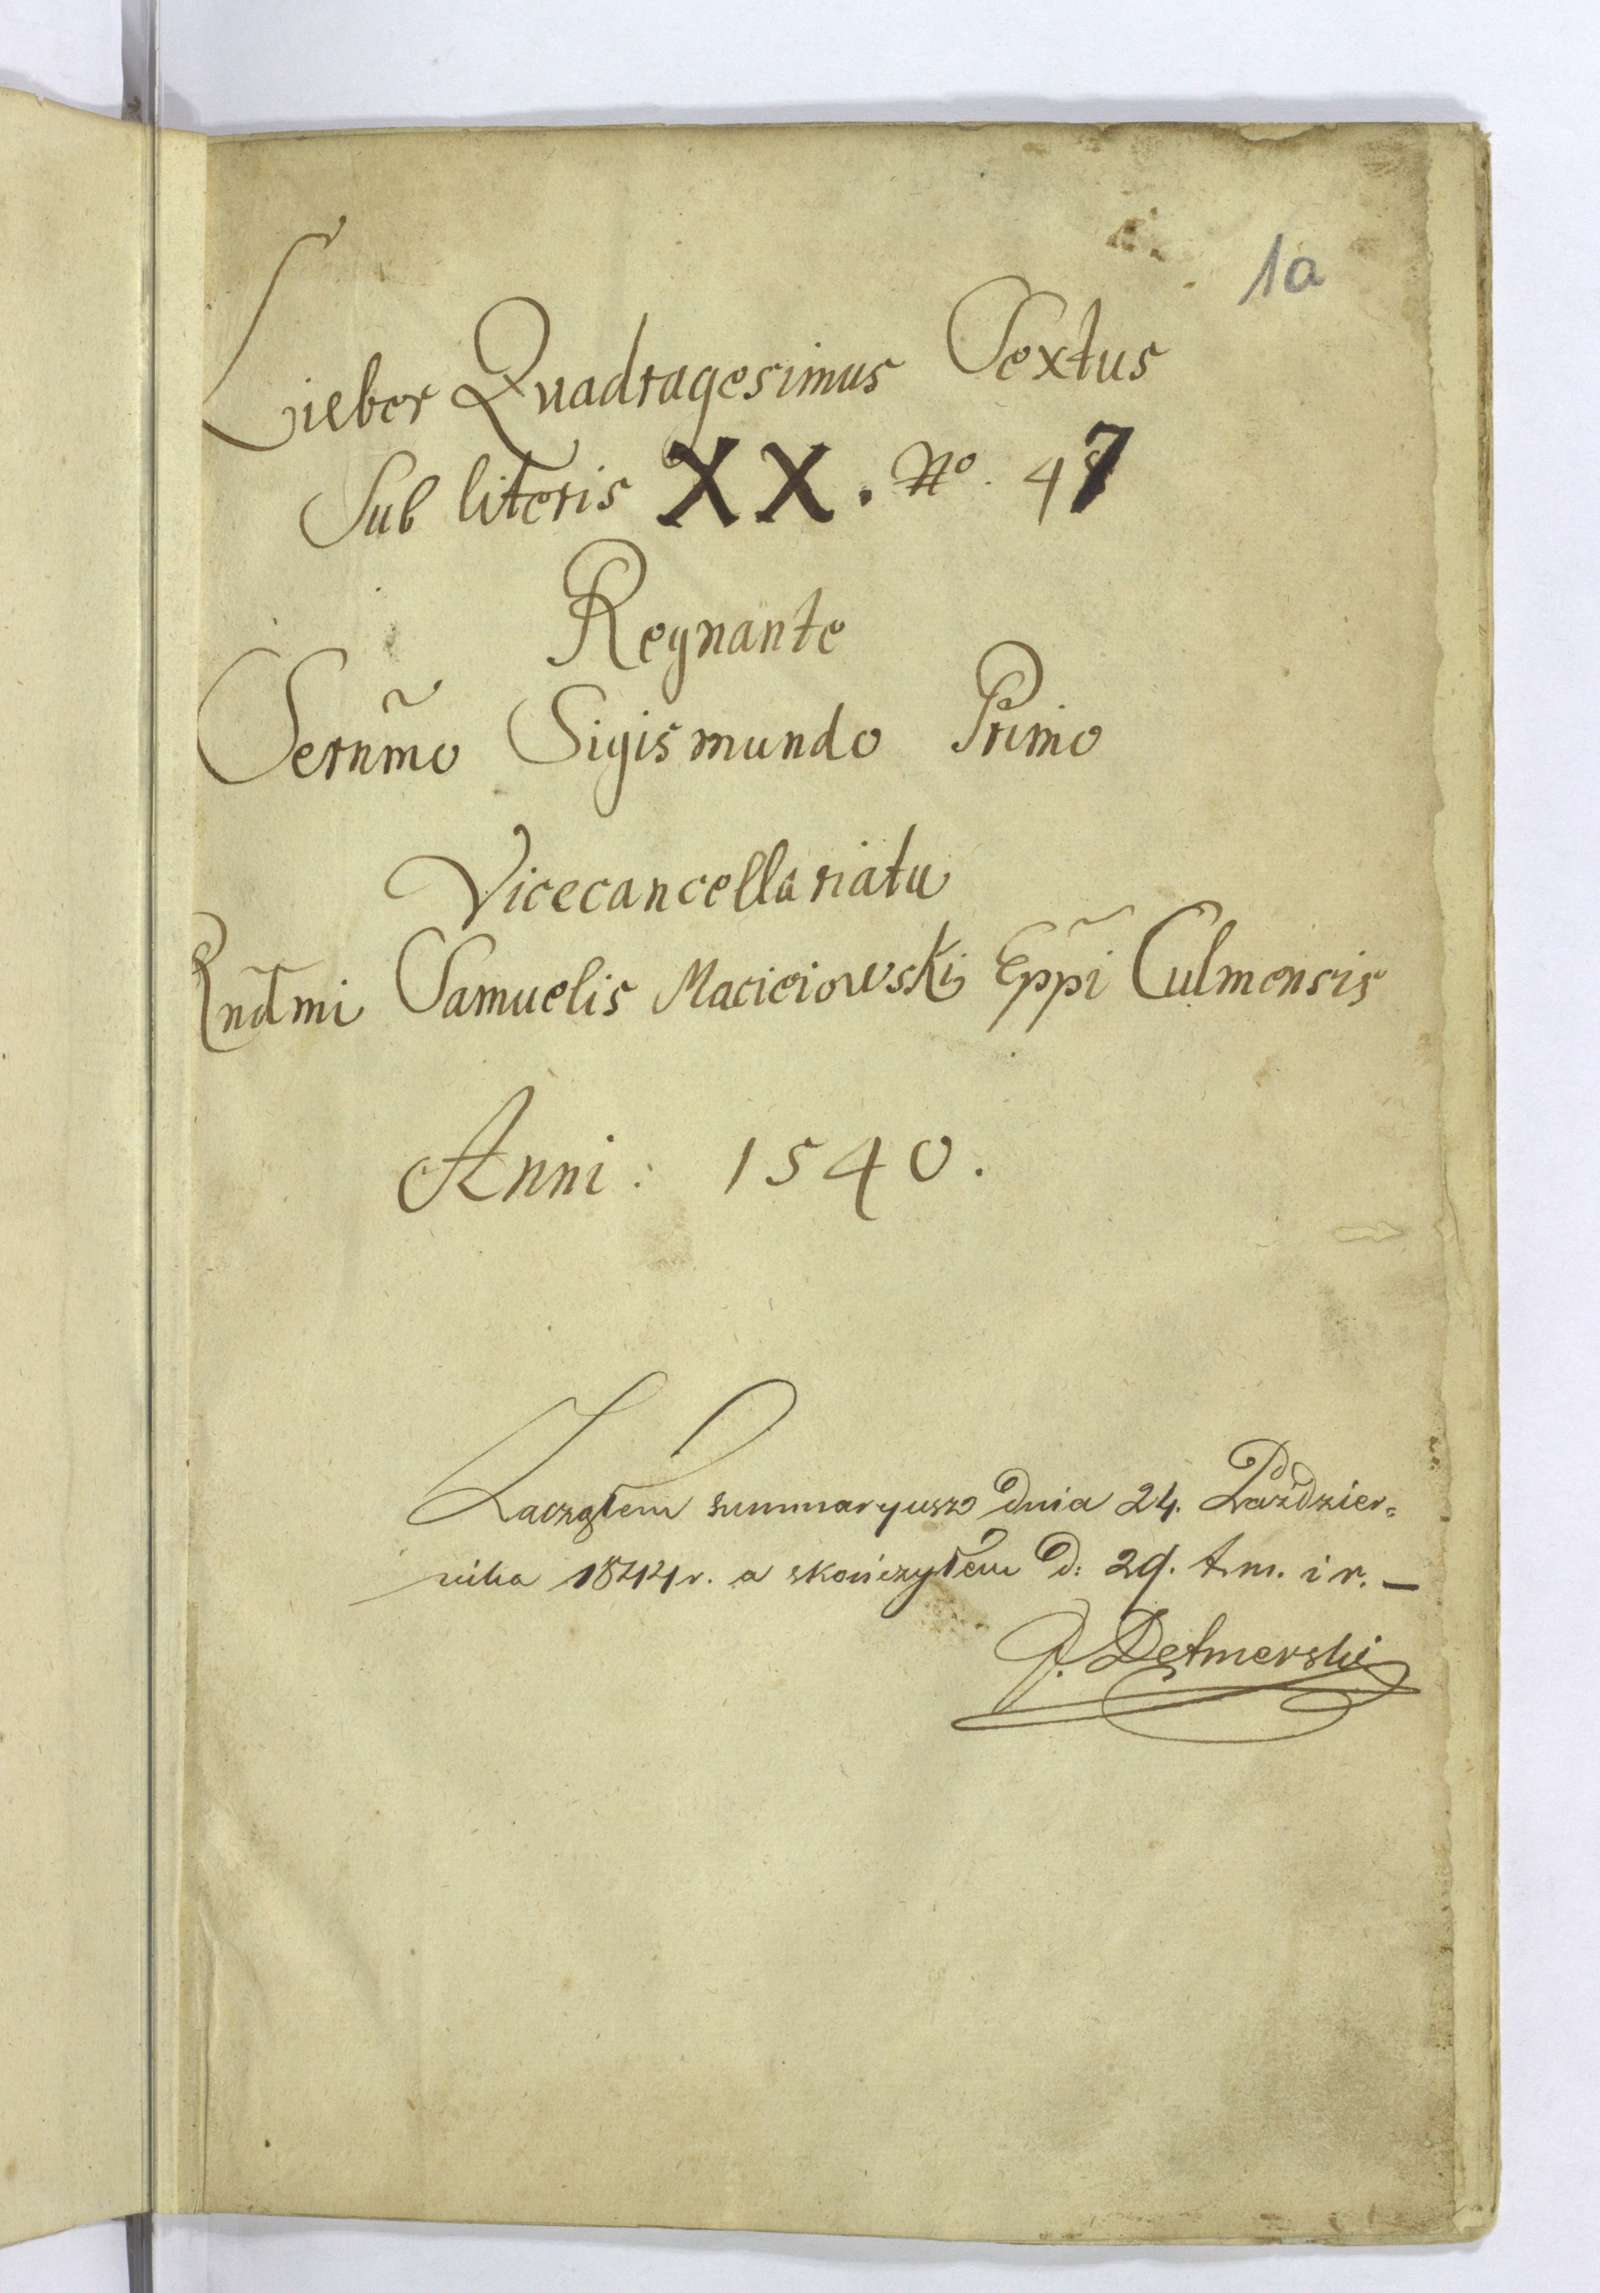 1a
Lieber Quadragesimus Sextus
Sub literis XX. No. 47
Regnante
Sernm̃o Sigismundo Primo
Vicecancellariatu
Rnd̃mi Samuelis Macieiowski Epp̃i Culmensis
Anni: 1540.
Zacząłem summaryusz dnia 24. Paździer=
nika 1844 r. a skończyłem d: 29. t. m. i r. —
P. Detmerski